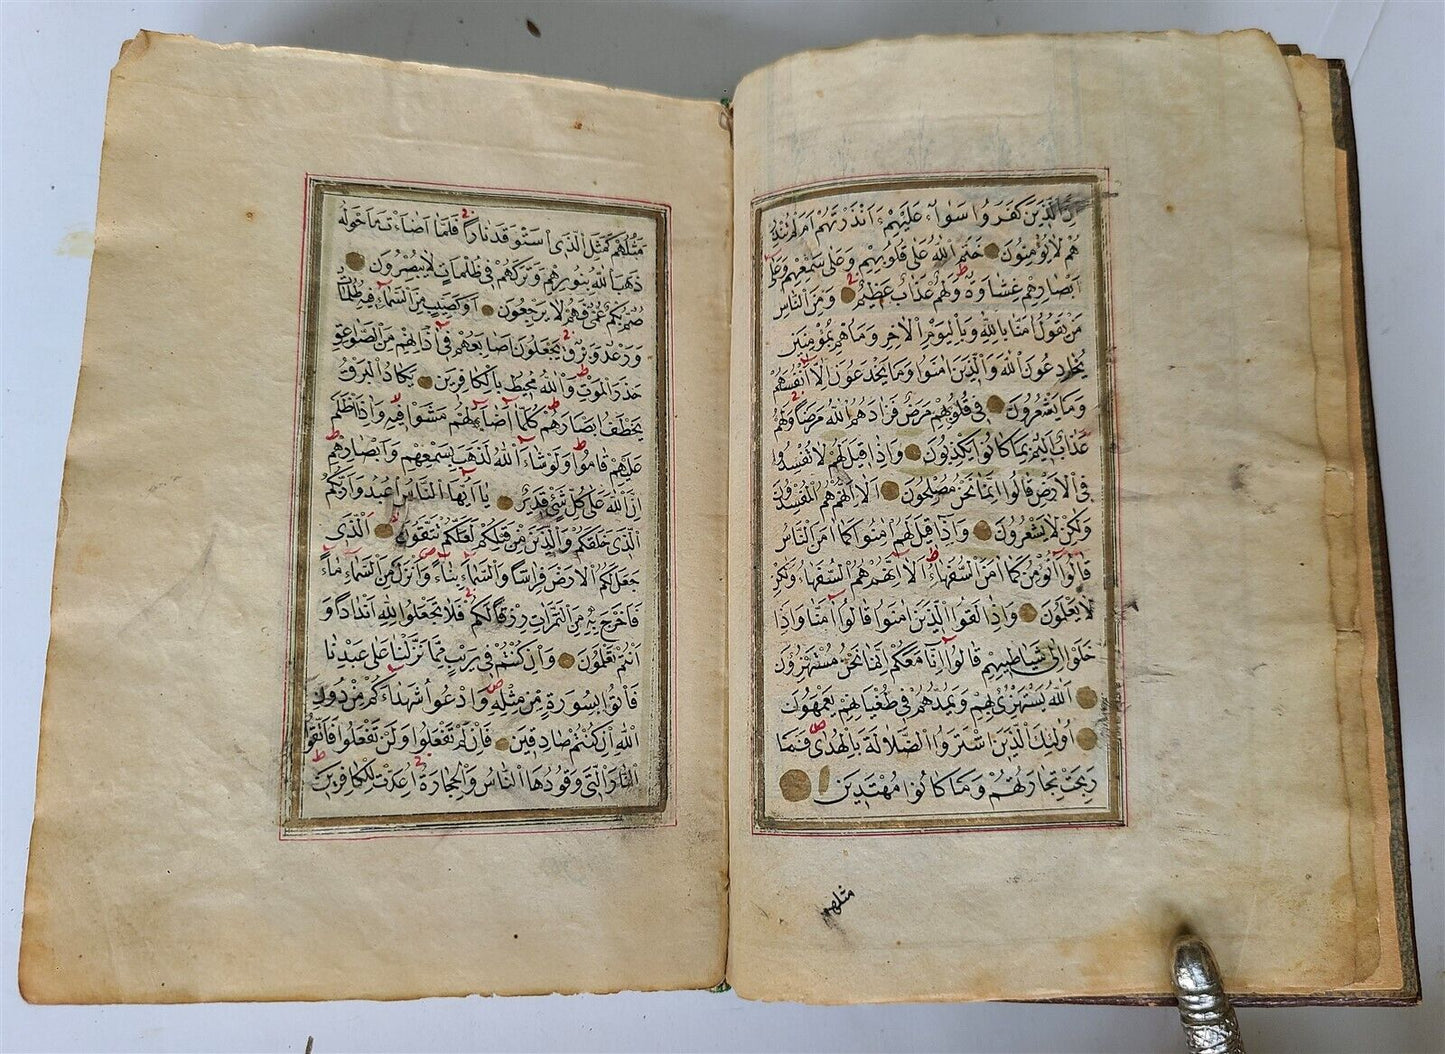 اِنَّ الَّذِينَ كَفَرُوا سَوَآءٌ عَلَيْهِمْ ءَاَنْذَرْتَهُمْ اَمْ لَمْ تُنْذِرْ
هُمْ لَا يُؤْمِنُونَ خَتَمَ اللّٰهُ عَلٰى قُلُوبِهِمْ وَعَلٰى سَمْعِهِمْ وَعَلٰٓى
اَبْصَارِهِمْ غِشَاوَةٌ وَلَهُمْ عَذَابٌ عَظِيمٌ وَمِنَ النَّاسِ
مَنْ يَقُولُ اٰمَنَّا بِاللّٰهِ وَبِالْيَوْمِ الْاٰخِرِ وَمَا هُمْ بِمُؤْمِنِينَ
يُخَادِعُونَ اللّٰهَ وَالَّذِينَ اٰمَنُوا وَمَا يَخْدَعُونَ اِلَّٓا اَنْفُسَهُمْ
وَمَا يَشْعُرُونَ فِى قُلُوبِهِمْ مَرَضٌ فَزَادَهُمُ اللّٰهُ مَرَضًا وَلَهُمْ
عَذَابٌ اَلِيمٌ بِمَا كَانُوا يَكْذِبُونَ وَاِذَا قِيلَ لَهُمْ لَا تُفْسِدُوا
فِى الْاَرْضِ قَالُوا اِنَّمَا نَحْنُ مُصْلِحُونَ اَلَا اِنَّهُمْ هُمُ الْمُفْسِدُونَ
وَلٰكِنْ لَا يَشْعُرُونَ وَاِذَا قِيلَ لَهُمْ اٰمِنُوا كَمَا اٰمَنَ النَّاسُ
قَالُوٓا اَنُؤْمِنُ كَمَا اٰمَنَ السُّفَهَاءُ اَلَا اِنَّهُمْ هُمُ السُّفَهَاءُ وَلٰكِنْ
لَا يَعْلَمُونَ وَاِذَا لَقُوا الَّذِينَ اٰمَنُوا قَالُوا اٰمَنَّا وَاِذَا
خَلَوْا اِلٰى شَيَاطِينِهِمْ قَالُوا اِنَّا مَعَكُمْ اِنَّمَا نَحْنُ مُسْتَهْزِؤُنَ
اَللّٰهُ يَسْتَهْزِئُ بِهِمْ وَيَمُدُّهُمْ فِى طُغْيَانِهِمْ يَعْمَهُونَ
اُولٰئِكَ الَّذِينَ اشْتَرَوُا الضَّلَالَةَ بِالْهُدٰى فَمَا
رَبِحَتْ تِجَارَتُهُمْ وَمَا كَانُوا مُهْتَدِينَ
مثلهم
مَثَلُهُمْ كَمَثَلِ الَّذِى اسْتَوْقَدَ نَارًا فَلَمَّا اَضَاءَتْ مَا حَوْلَهُ
ذَهَبَ اللّٰهُ بِنُورِهِمْ وَتَرَكَهُمْ فِى ظُلُمَاتٍ لَا يُبْصِرُونَ
صُمٌّ بُكْمٌ عُمْىٌ فَهُمْ لَا يَرْجِعُونَ اَوْ كَصَيِّبٍ مِنَ السَّمَاءِ فِيهِ ظُلُمَاتٌ
وَرَعْدٌ وَبَرْقٌ يَجْعَلُونَ اَصَابِعَهُمْ فِى اٰذَانِهِمْ مِنَ الصَّوَاعِقِ
حَذَرَ الْمَوْتِ وَاللّٰهُ مُحِيطٌ بِالْكَافِرِينَ يَكَادُ الْبَرْقُ
يَخْطَفُ اَبْصَارَهُمْ كُلَّمَا اَضَاءَ لَهُمْ مَشَوْا فِيهِ وَاِذَا اَظْلَمَ
عَلَيْهِمْ قَامُوا وَلَوْ شَاءَ اللّٰهُ لَذَهَبَ بِسَمْعِهِمْ وَاَبْصَارِهِمْ
اِنَّ اللّٰهَ عَلٰى كُلِّ شَىْءٍ قَدِيرٌ يَا اَيُّهَا النَّاسُ اعْبُدُوا رَبَّكُمُ
الَّذِى خَلَقَكُمْ وَالَّذِينَ مِنْ قَبْلِكُمْ لَعَلَّكُمْ تَتَّقُونَ اَلَّذِى
جَعَلَ لَكُمُ الْاَرْضَ فِرَاشًا وَالسَّمَاءَ بِنَاءً وَاَنْزَلَ مِنَ السَّمَاءِ مَاءً
فَاَخْرَجَ بِهِ مِنَ الثَّمَرَاتِ رِزْقًا لَكُمْ فَلَا تَجْعَلُوا لِلّٰهِ اَنْدَادًا وَ
اَنْتُمْ تَعْلَمُونَ وَاِنْ كُنْتُمْ فِى رَيْبٍ مِمَّا نَزَّلْنَا عَلٰى عَبْدِنَا
فَأْتُوا بِسُورَةٍ مِنْ مِثْلِهِ وَادْعُوا شُهَدَاءَكُمْ مِنْ دُونِ
اللّٰهِ اِنْ كُنْتُمْ صَادِقِينَ فَاِنْ لَمْ تَفْعَلُوا وَلَنْ تَفْعَلُوا فَاتَّقُوا
النَّارَ الَّتِى وَقُودُهَا النَّاسُ وَالْحِجَارَةُ اُعِدَّتْ لِلْكَافِرِينَ